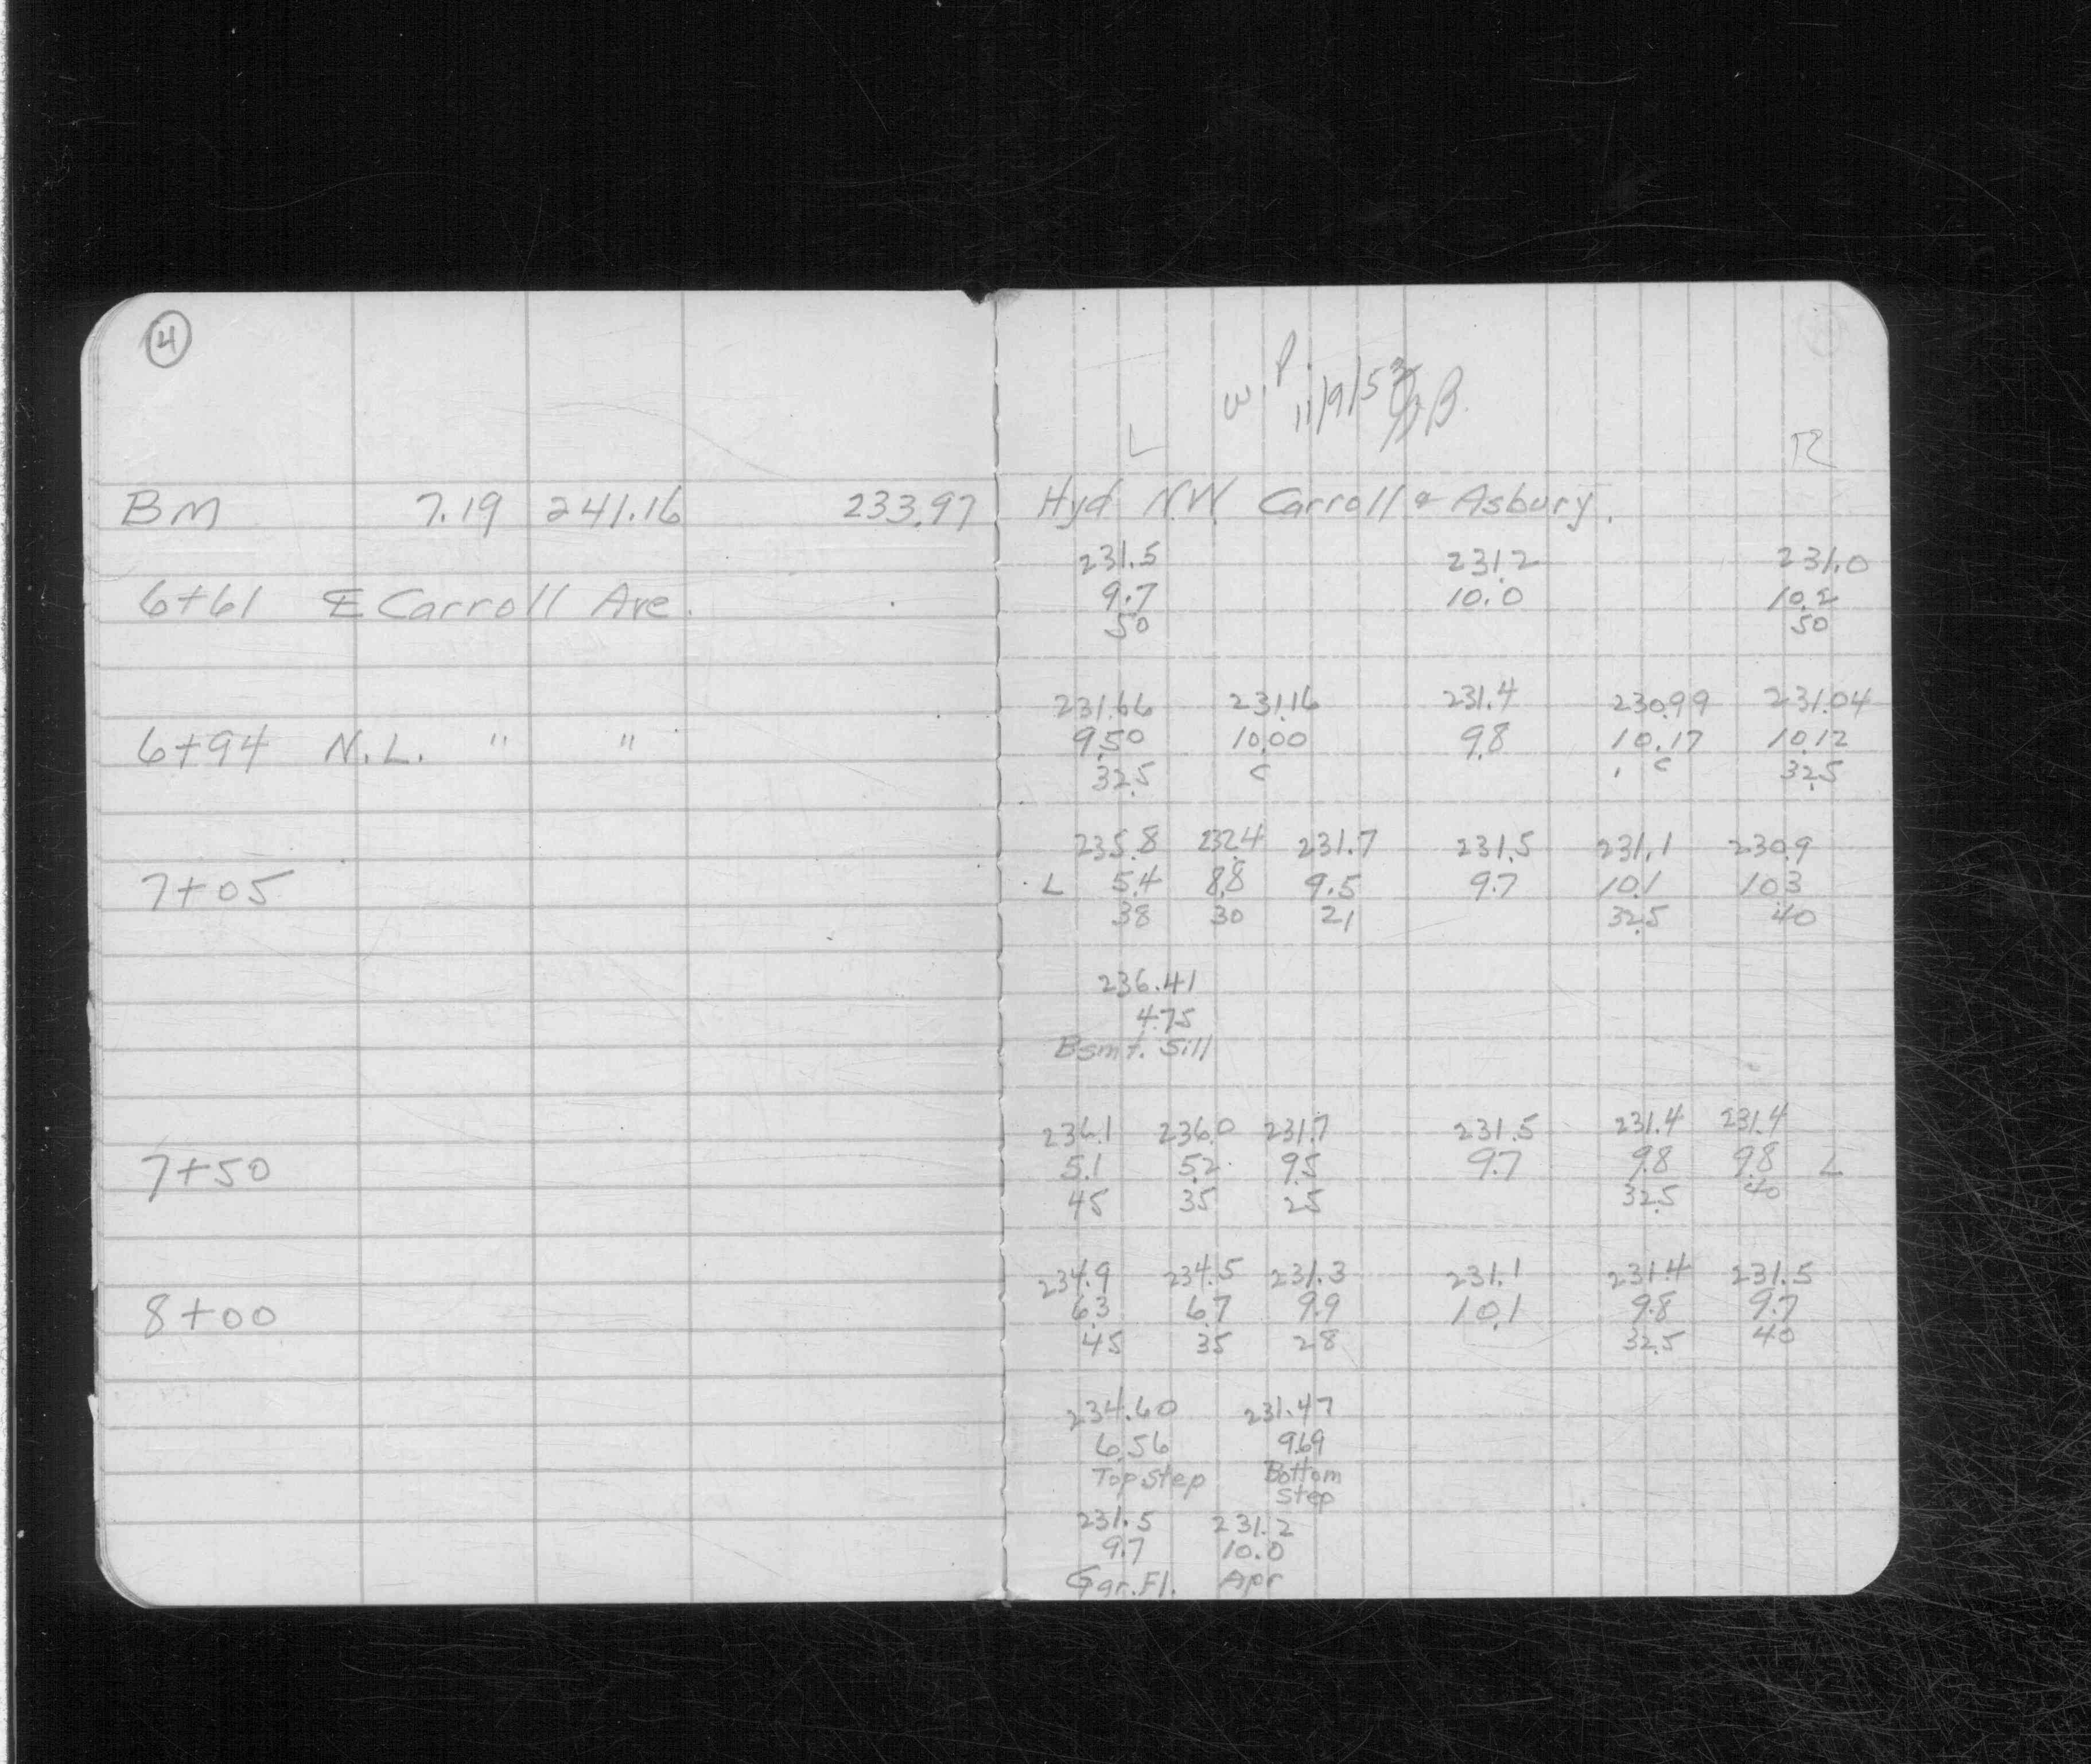 4
W.P. 11/9/53
L R
BM 7.19 241.16 233.97 Hyd N.W. Carroll & Asbury.
231.5 231.2 231.0
6+61 ℄ Carroll Ave. 9.7 10.0 10.2
50 50
231.66 231.16 231.4 230.99 231.04
6+94 N.L. " " 9.50 10.00 9.8 10.17 10.12
32.5 c c 32.5
235.8 232.4 231.7 231.5 231.1 230.9
7+05 L 5.4 8.8 9.5 9.7 10.1 10.3
38 30 21 32.5 40
236.41
4.75
Bsmt. Sill
236.1 236.0 231.7 231.5 231.4 231.4
7+50 5.1 5.2 9.5 9.7 9.8 9.8 L
45 35 25 32.5 40
234.9 234.5 231.3 231.1 231.4 231.5
8+00 6.3 6.7 9.9 10.1 9.8 9.7
45 35 28 32.5 40
234.60 231.47
6.56 9.69
Top Step Bottom
Step
231.5 231.2
9.7 10.0
Gar. Fl. Apr